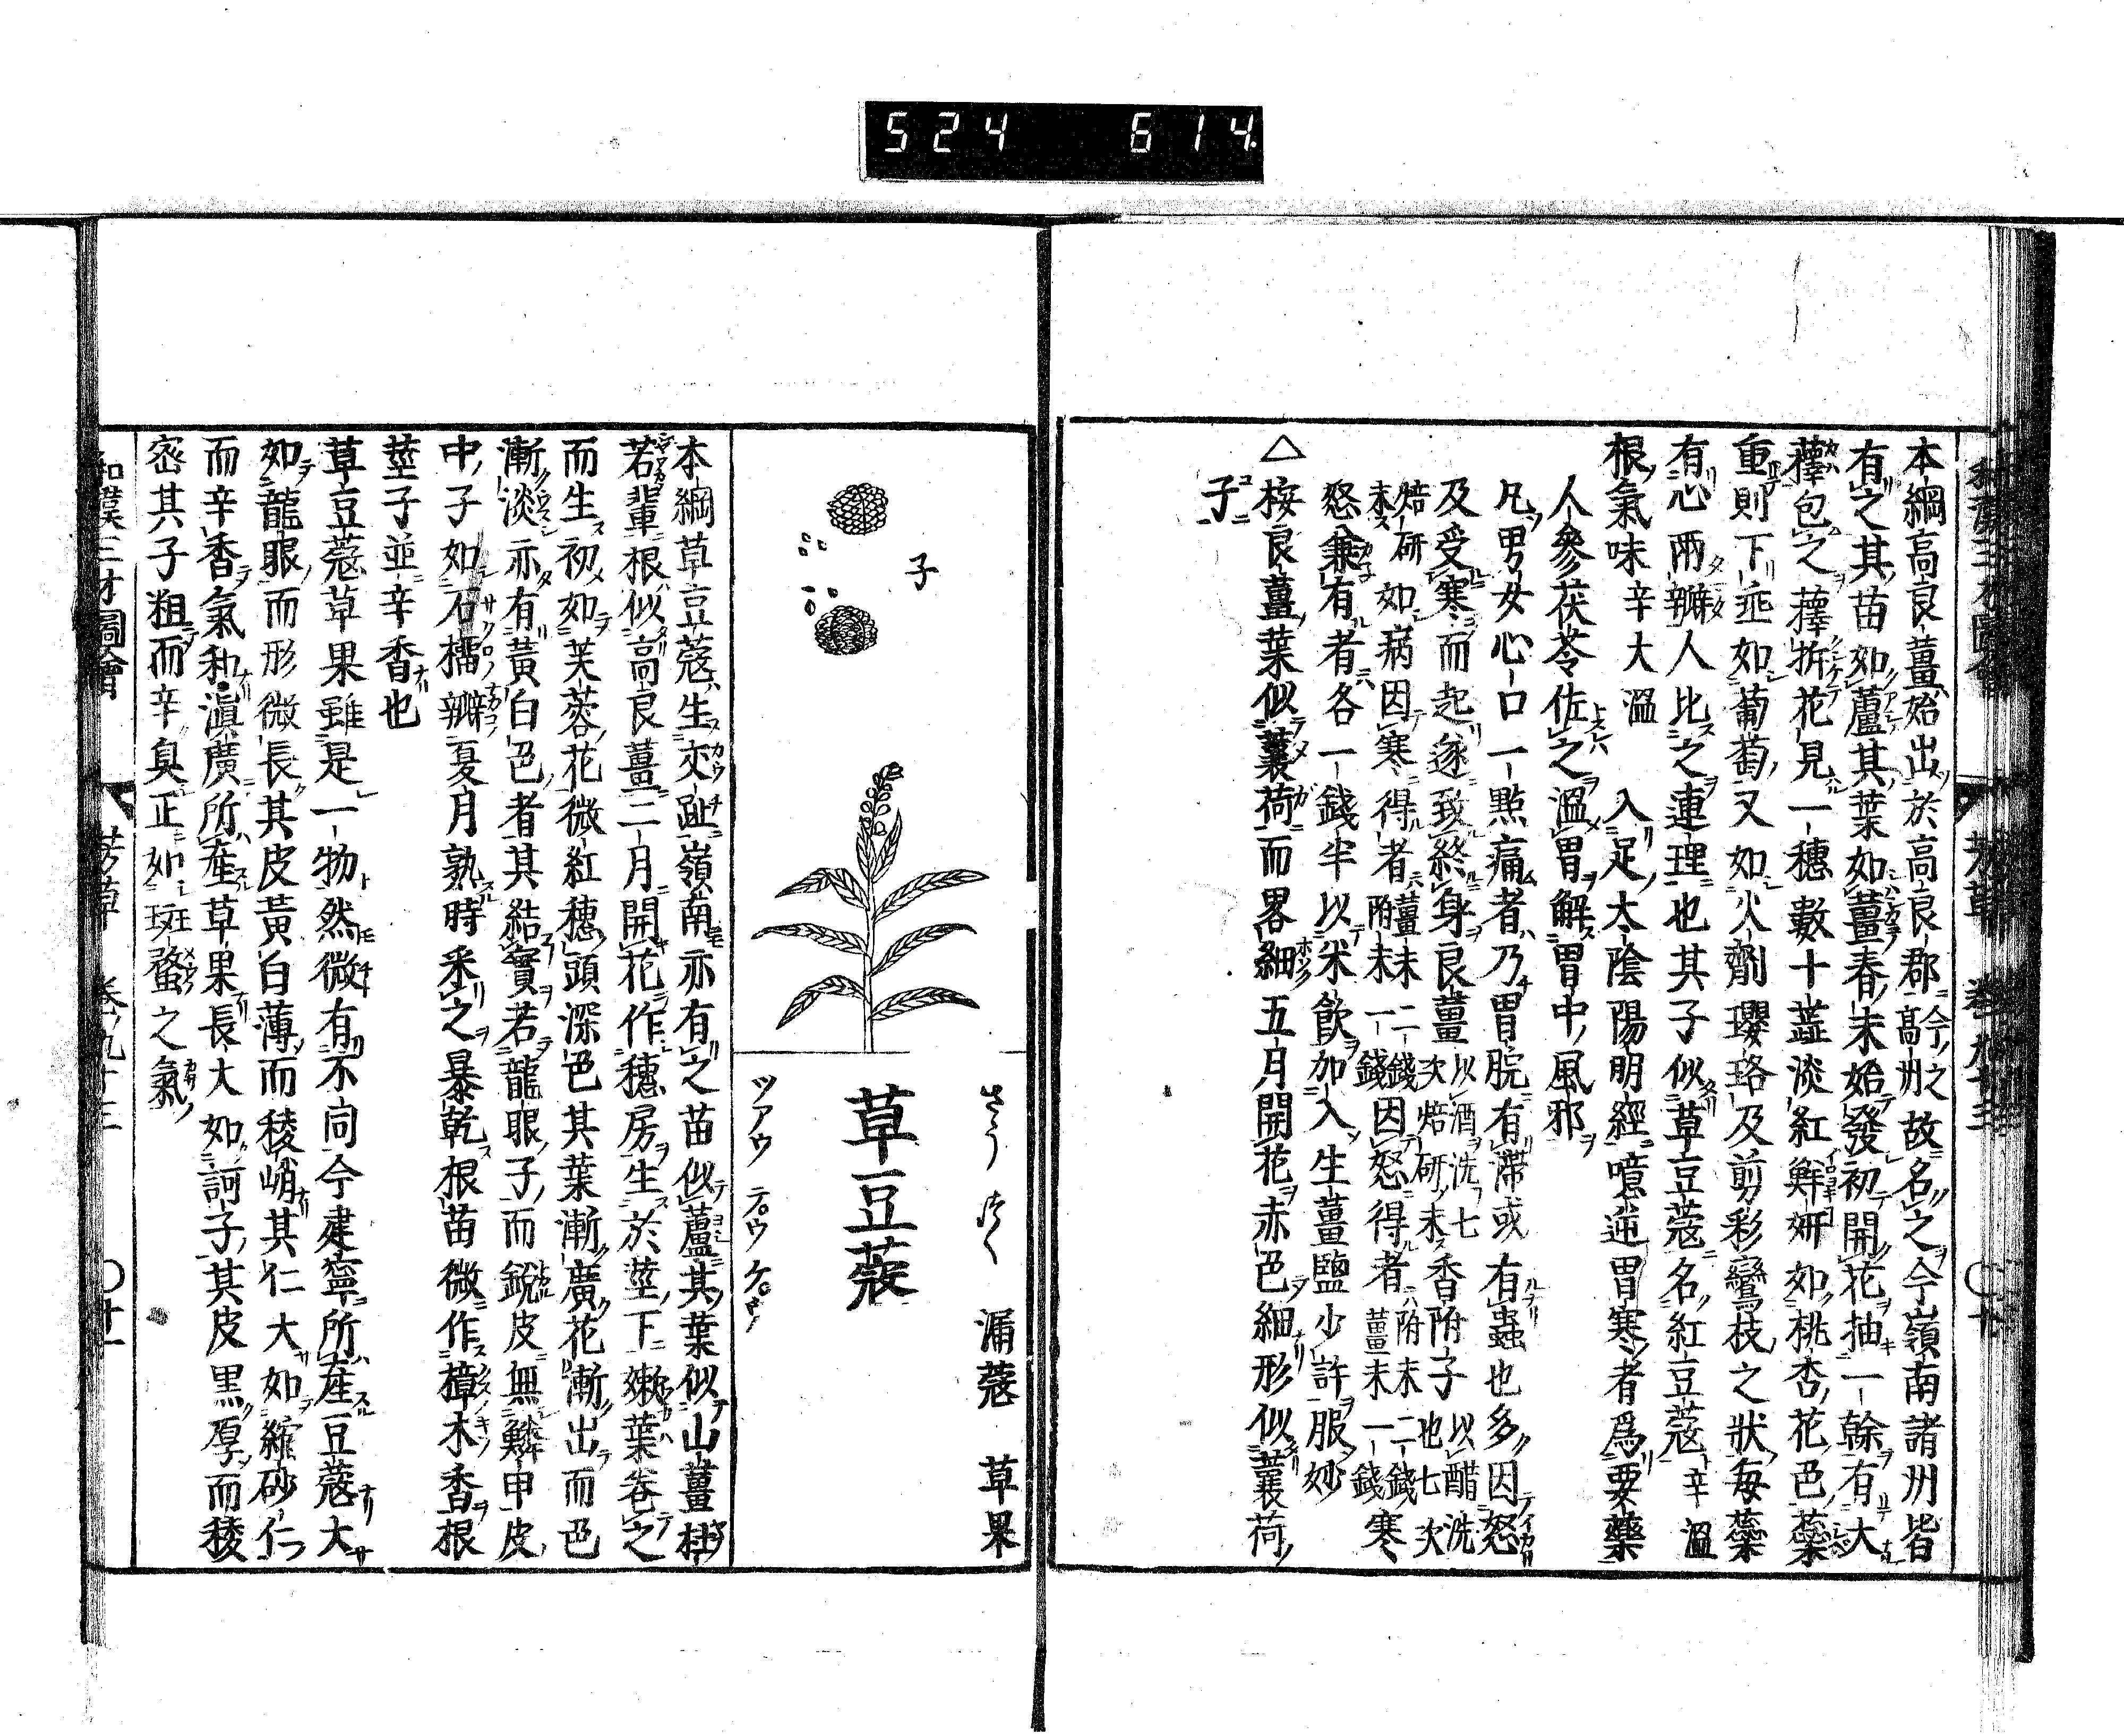 524 614
和漢三才圖會 芳草 卷九十三 〇十九
本綱高良薑始出於高良郡今之高州故名之今嶺南諸州皆
有之其苗如蘆其葉如薑春末始發初開花抽一幹有大
籜包之籜拆花見一穗數十蕋淡紅鮮妍如桃杏花色蘂
重則下垂如葡萄又如火齊瓔珞及剪彩鸞枝之狀每蘂
有心兩瓣人比之連理也其子似草豆蔻名紅豆蔻辛溫
根氣味辛大溫 入足太陰陽明經噫逆胃寒者爲要藥
人參茯苓佐之溫胃解胃中風邪
凡男女心口一點痛者乃胃脘有滯或有蟲也多因怒
及受寒而起遂致終身良薑以酒洗七次焙研末香附子以醋洗七次也
焙研末如病因寒得者薑末二錢附末一錢因怒得者附末二錢薑末一錢寒
怒兼有者各一錢半以米飲加入生薑鹽少許服妙
△桉良薑葉似蘘荷而畧細五月開花赤色細形似蘘荷
子
子
さうづく 漏蔻 草果
草豆蔻
ツアウ テ゜ウ ゲ゜ウ
本綱草豆蔻生交趾嶺南亦有之苗似蘆其葉似山薑杜
若輩根似高良薑二月開花作穗房生於莖下嫩葉卷之
而生初如芙蓉花微紅穗頭深色其葉漸廣花漸出而色
漸淡亦有黃白色者其結實若龍眼子而銳皮無鱗甲皮
中子如石榴瓣夏月熟時采之暴乾根苗微作樟木香根
莖子並辛香也
草豆蔻草果雖是一物然微有不同今建寧所產豆蔻大
如龍眼而形微長其皮黃白薄而稜峭其仁大如縮砂仁
而辛香氣和滇廣所產草果長大如訶子其皮黒厚而稜
密其子粗而辛臭正如斑蝥之氣
和漢三才圖會 芳草 卷九十三 〇廿一